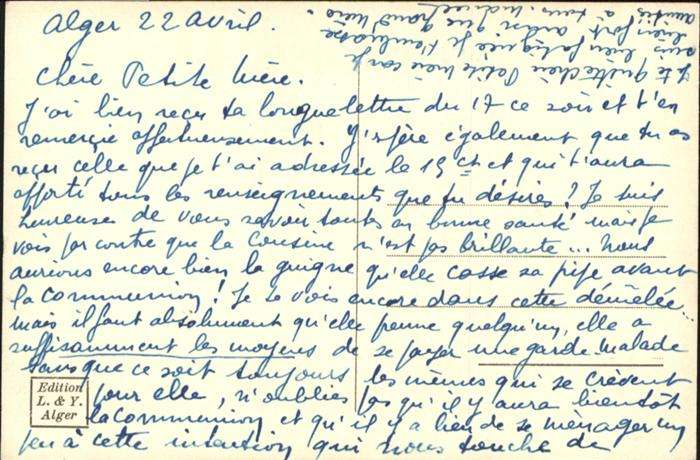 Alger 22 Avril.
Chère Petite Mère.
J'ai bien reçu ta longue lettre du 17 ce soir et t'en
remercie affectueusement. J'espère également que tu as
reçu celle que je t'ai adressée le 19 ct et qui t'aura
apporté tous les renseignements que tu désires? Je suis
heureuse de vous savoir toutes en bonne santé mais je
vois par contre que la Cousine n'est pas brillante... Nous
aurions encore bien la guigne qu'elle casse sa pipe avant
la communion! Je te vois encore dans cette démêlée...
mais il faut absolument qu'elle prenne quelqu'un, elle a
suffisamment les moyens de se payer une garde-malade
sans que ce soit toujours les mêmes qui se crèvent
pour elle, n'oublies pas qu'il y aura bientôt
la communion et qu'il y a lieu de se ménager un
peu à cette intention qui nous touche de
Je te quitte chère Petite Mère car je
suis bien fatiguée je t'embrasse
bien fort ainsi que grand'mère
à tous.
amitiés
Edition
L. & Y.
Alger